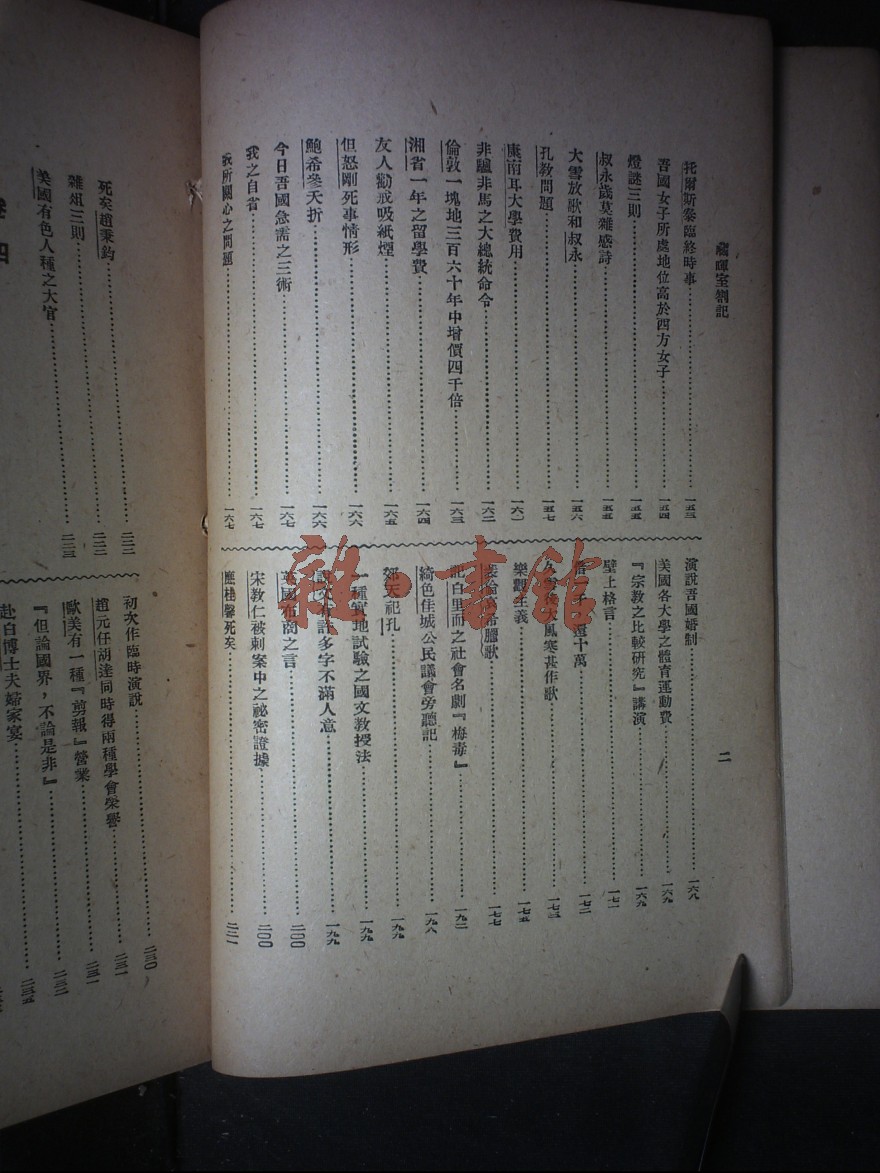 藏暉室劄記
二
托爾斯泰臨終時事…一五三
吾國女子所處地位高於四方女子…一五四
燈謎三則…一五五
叔永歲莫雜感詩…一五五
大雪放歌和叔永…一五六
孔教問題…一五七
康南耳大學費用…一六〇
非驢非馬之大總統命令…一六二
倫敦一塊地三百六十年中增價四千倍…一六三
湘省一年之留學費…一六四
友人勸戒吸紙煙…一六五
但怒剛死事情形…一六六
鮑希參夭折…一六六
今日吾國急需之三術…一六七
我之自省…一六七
我所關心之問題…一六七
演說吾國婚制…一六八
美國各大學之體育運動費…一六九
『宗教之比較研究』講演…一六九
壁上格言…一七一
借一千還十萬…一七二
久雪後大風寒甚作歌…一七三
樂觀主義…一七五
裴倫哀希臘歌…一七七
記白里而之社會名劇『梅毒』…一九二
綺色佳城公民議會旁聽記…一九八
郊天祀孔…一九九
一種實地試驗之國文教授法…一九九
說文有許多字不滿人意…一九九
英國布商之言…二〇〇
宋教仁被刺案中之祕密證據…二〇〇
應桂馨死矣…二二一
死矣趙秉鈞…二二二
雜俎三則…二二二
美國有色人種之大官…二二三
卷四
初次作臨時演說…二三〇
趙元任胡達同時得兩種學會榮譽…二三一
歐美有一種『剪報』營業…二三一
『但論國界，不論是非』…二三二
赴白博士夫婦家宴…二三五
雜·書館